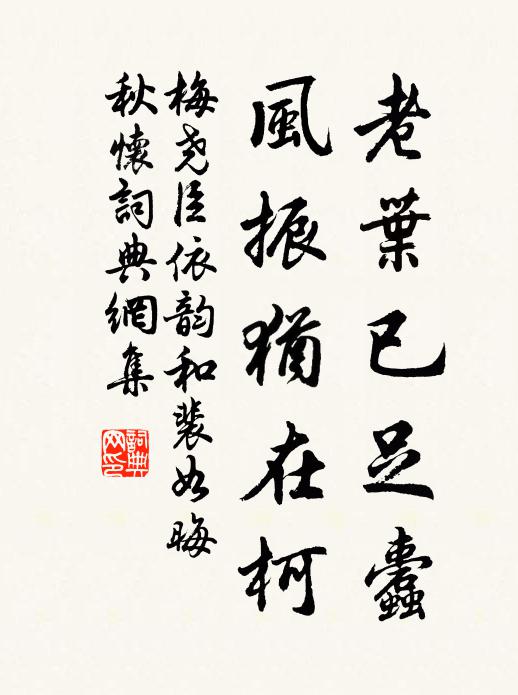 老葉已足蠹
風振猶在柯
梅堯臣依韵和裴如晦
秋懷詞典網集
詞典网印